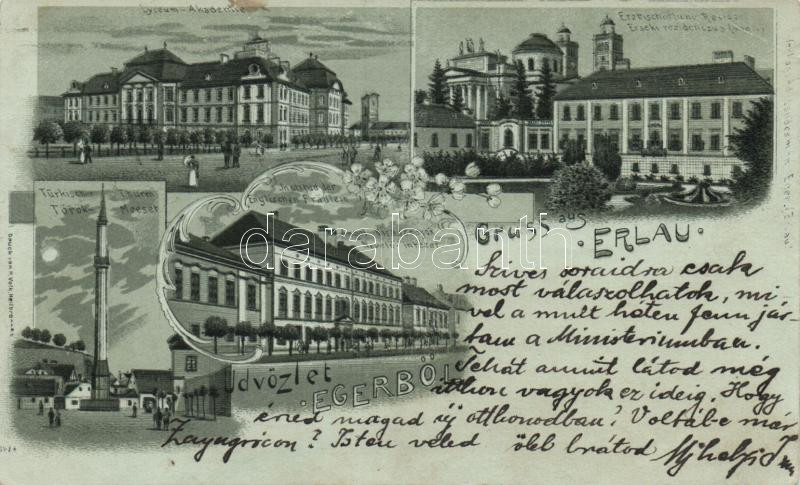 Lyceum-Akademie
Türkischer Thurm
Török- Mecset
Institut der
Englischen Fräulein
Gruss aus
ERLAU.
Üdvözlet
EGERBŐL
Szives soraidra csak
most válaszolhatok, mi-
vel a mult héten fenn jár-
tam a Ministeriumban.
Tehát amint látod még
itthon vagyok ez ideig. Hogy
érzed magad új otthonodban? Voltál-e már
Zayugrócon? Isten veled ölel brátod